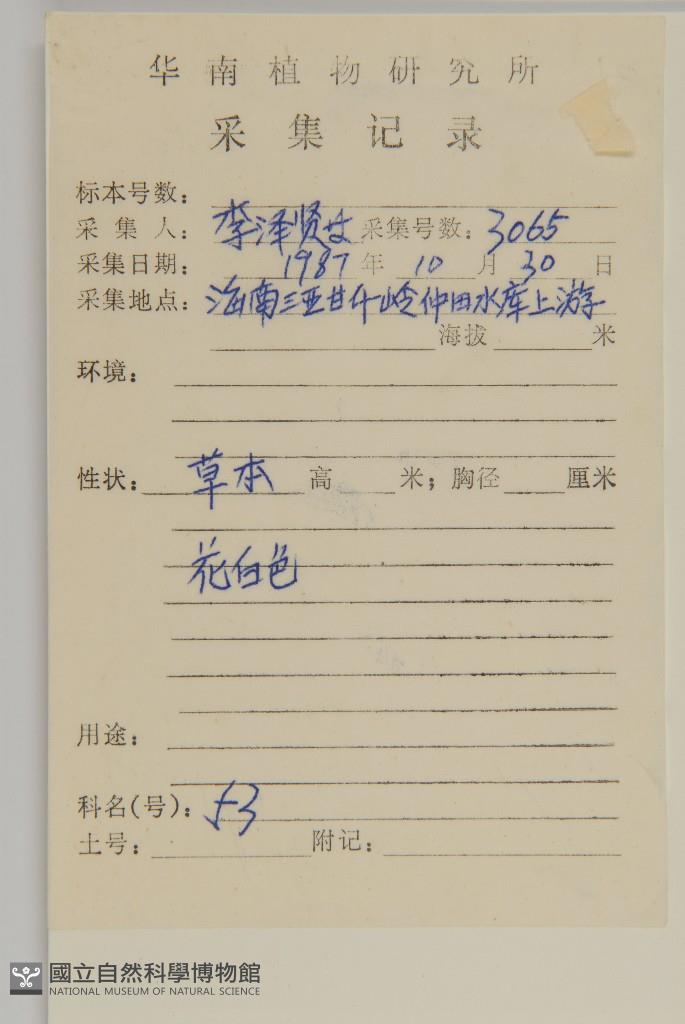 华南植物研究所
采集记录
标本号数：
采集人：李泽贤 采集号数：3065
采集日期：1987年10月30日
采集地点：海南三亚甘什岭仲田水库上游
海拔 米
环境：
性状：草本 高 米；胸径 厘米
花白色
用途：
科名(号)：53
土号： 附记：
國立自然科學博物館
NATIONAL MUSEUM OF NATURAL SCIENCE